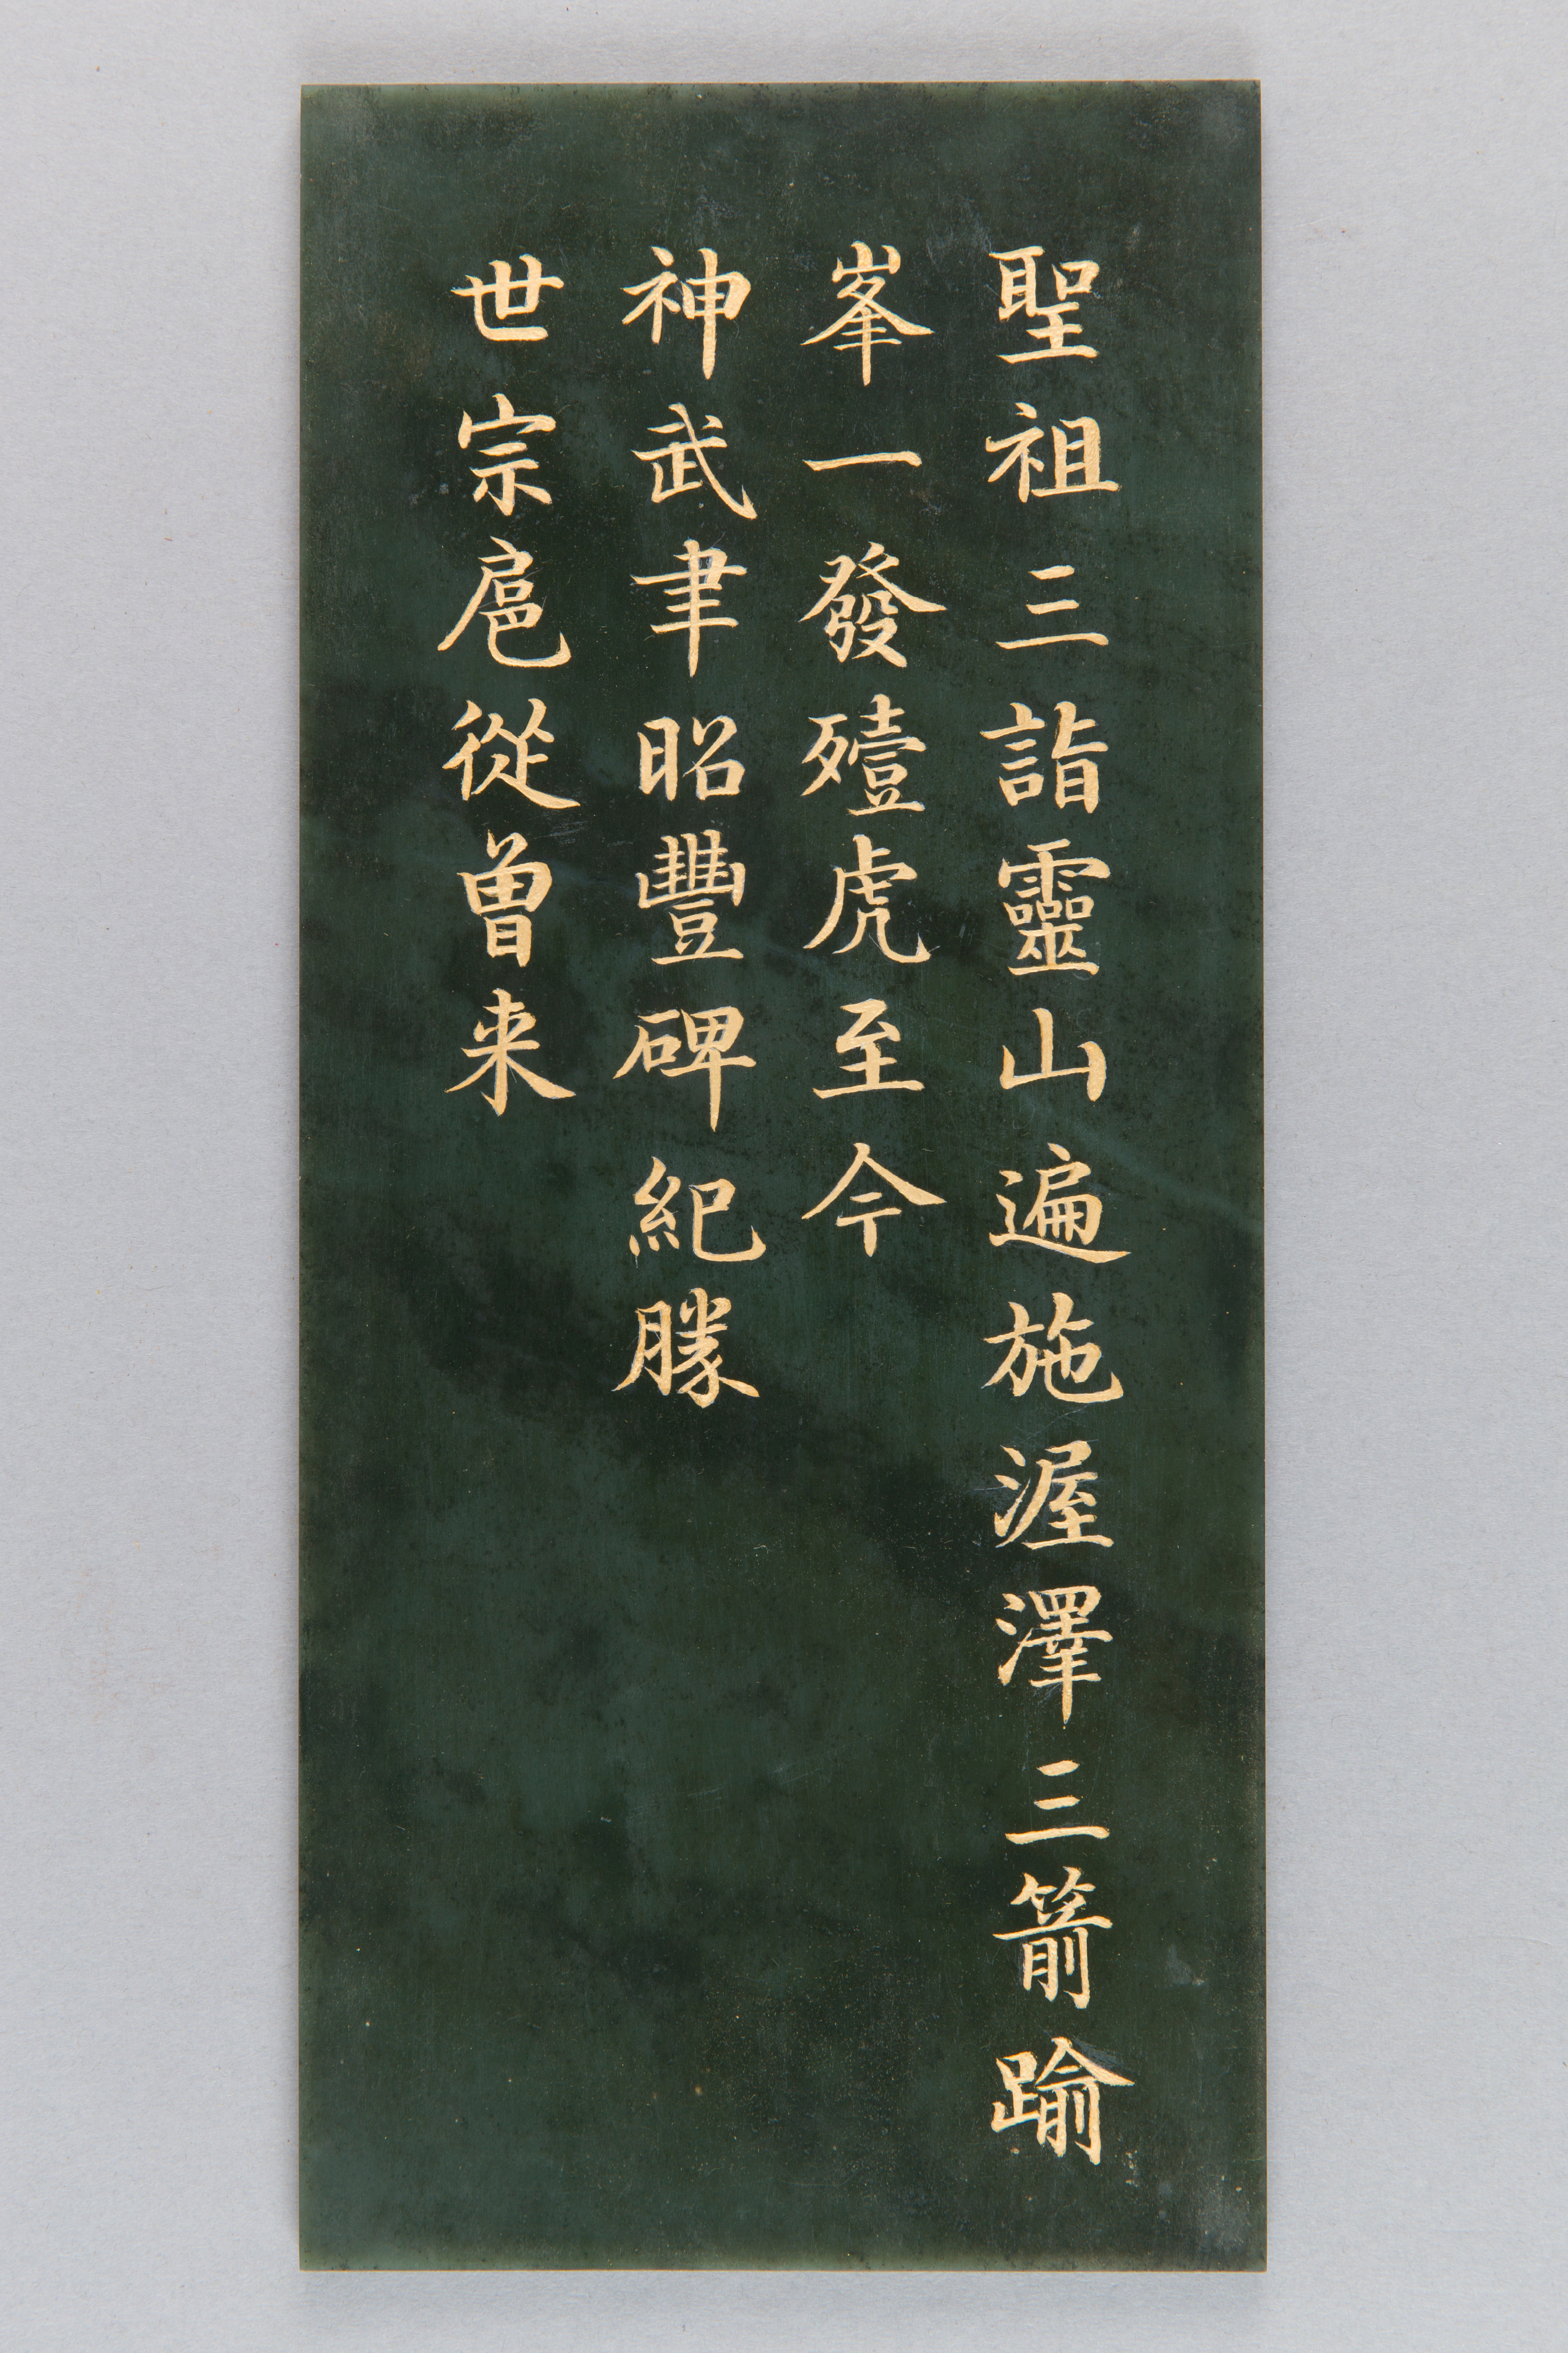 聖祖三詣靈山遍施渥澤三箭踰
峯一發殪虎至今
神武聿昭豐碑紀勝
世宗扈從曾来